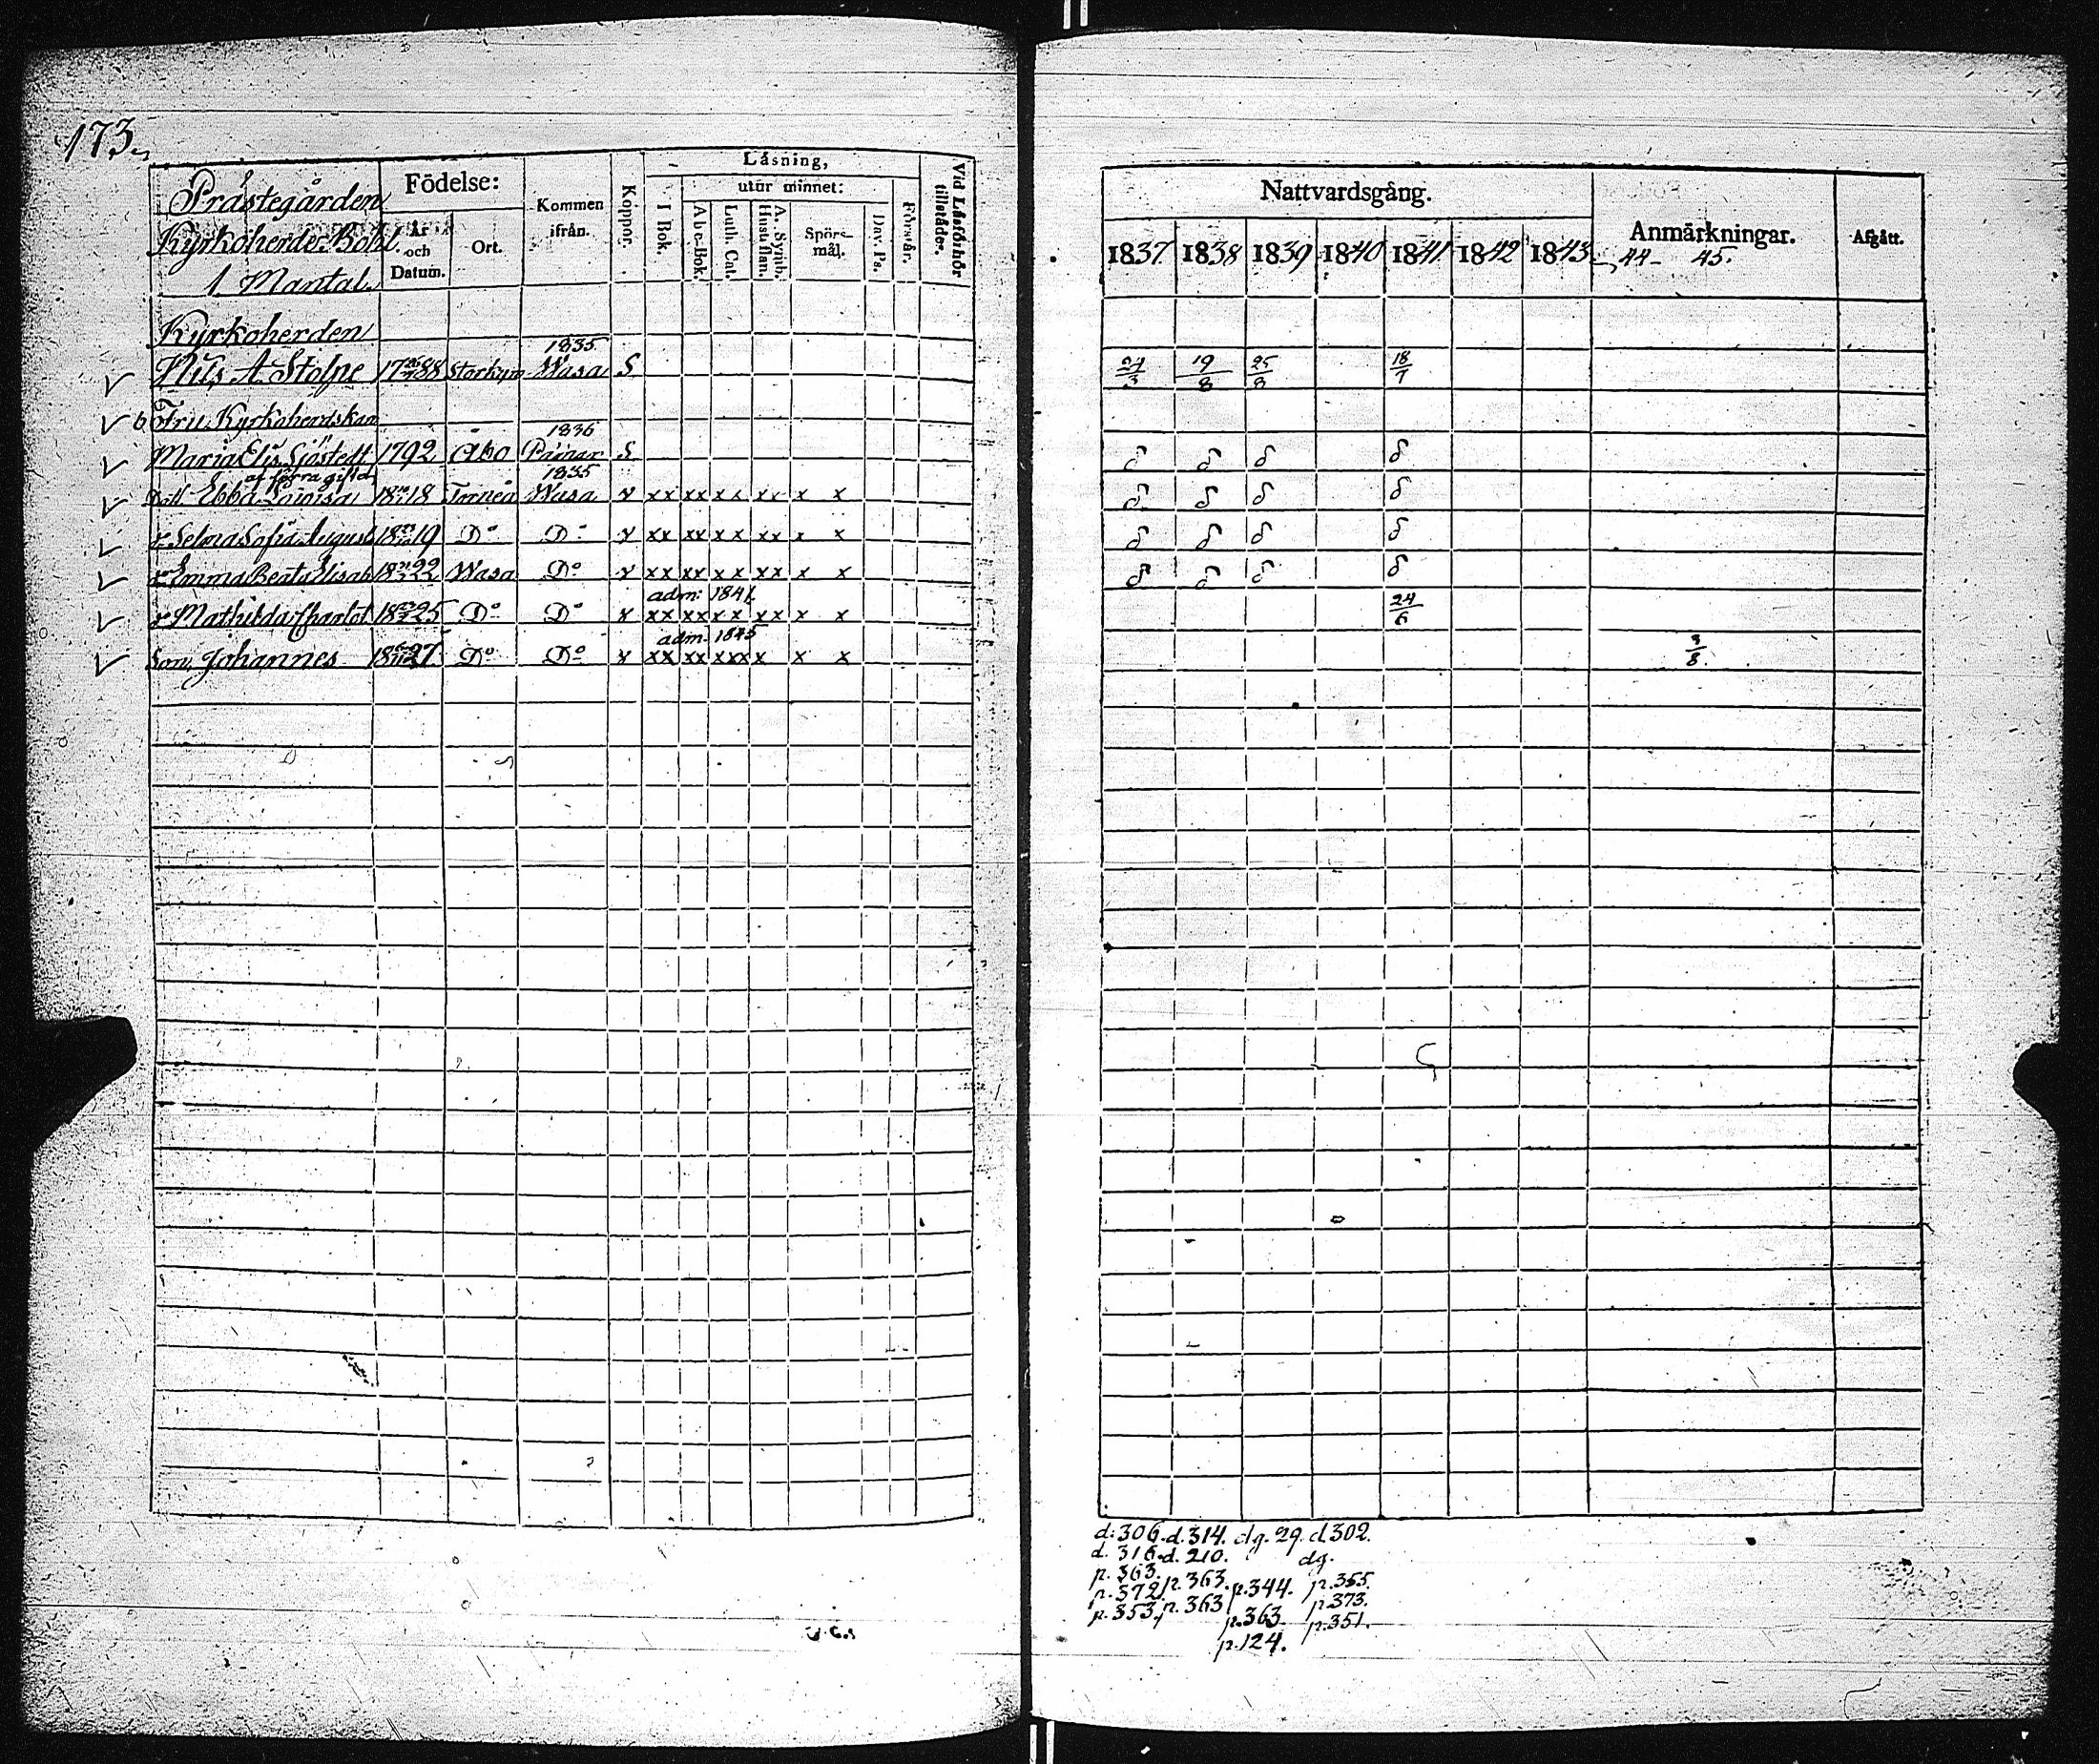 173
Prästegården
Kyrkoherde Bohl.
1 Mantal.
Födelse:
År och Datum.
Ort.
Kommen ifrån.
Koppor.
Läsning,
I Bok.
utur minnet:
Abc-Bok.
Luth. Cat.
A. Symb. Hustaflan.
Spörsmål.
Dav. Ps.
Förstår.
Vid Läsförhör tillstädes.
Kyrkoherden
1835
Nils A. Stolpe 1788 Storkyro Wasa S
Fru Kyrkoherdskan
1836
Maria Elis. Sjöstedt 1792 Åbo S
af förra giftet 1835
Dott. Ebba Lovisa 1818 Torneå Wasa x xx xx xx xx x x
Selma Sofia August 1819 Do Do x xx xx x x xx x x
Emma Beata Elisab 1822 Wasa Do x xx xx x x xx x x
adm: 1841.
Mathilda Charlot 1825 Do Do x xx xx x x xx x x
adm. 1845
Son Johannes 1827 Do Do x xx xx xxx x x x
Nattvardsgång.
1837 1838 1839 1840 1841 1842 1843
Anmärkningar.
44- 45.
Afgått.
24/3 19/8 25/8 18/7
24/6
3/8.
d. 306. d. 314. dg. 29. d. 302.
d. 316. d. 210. dg.
p. 363.
p. 372. p. 363. p. 344. p. 355.
p. 353. p. 363 p. 373.
p. 363. p. 351.
p. 124.